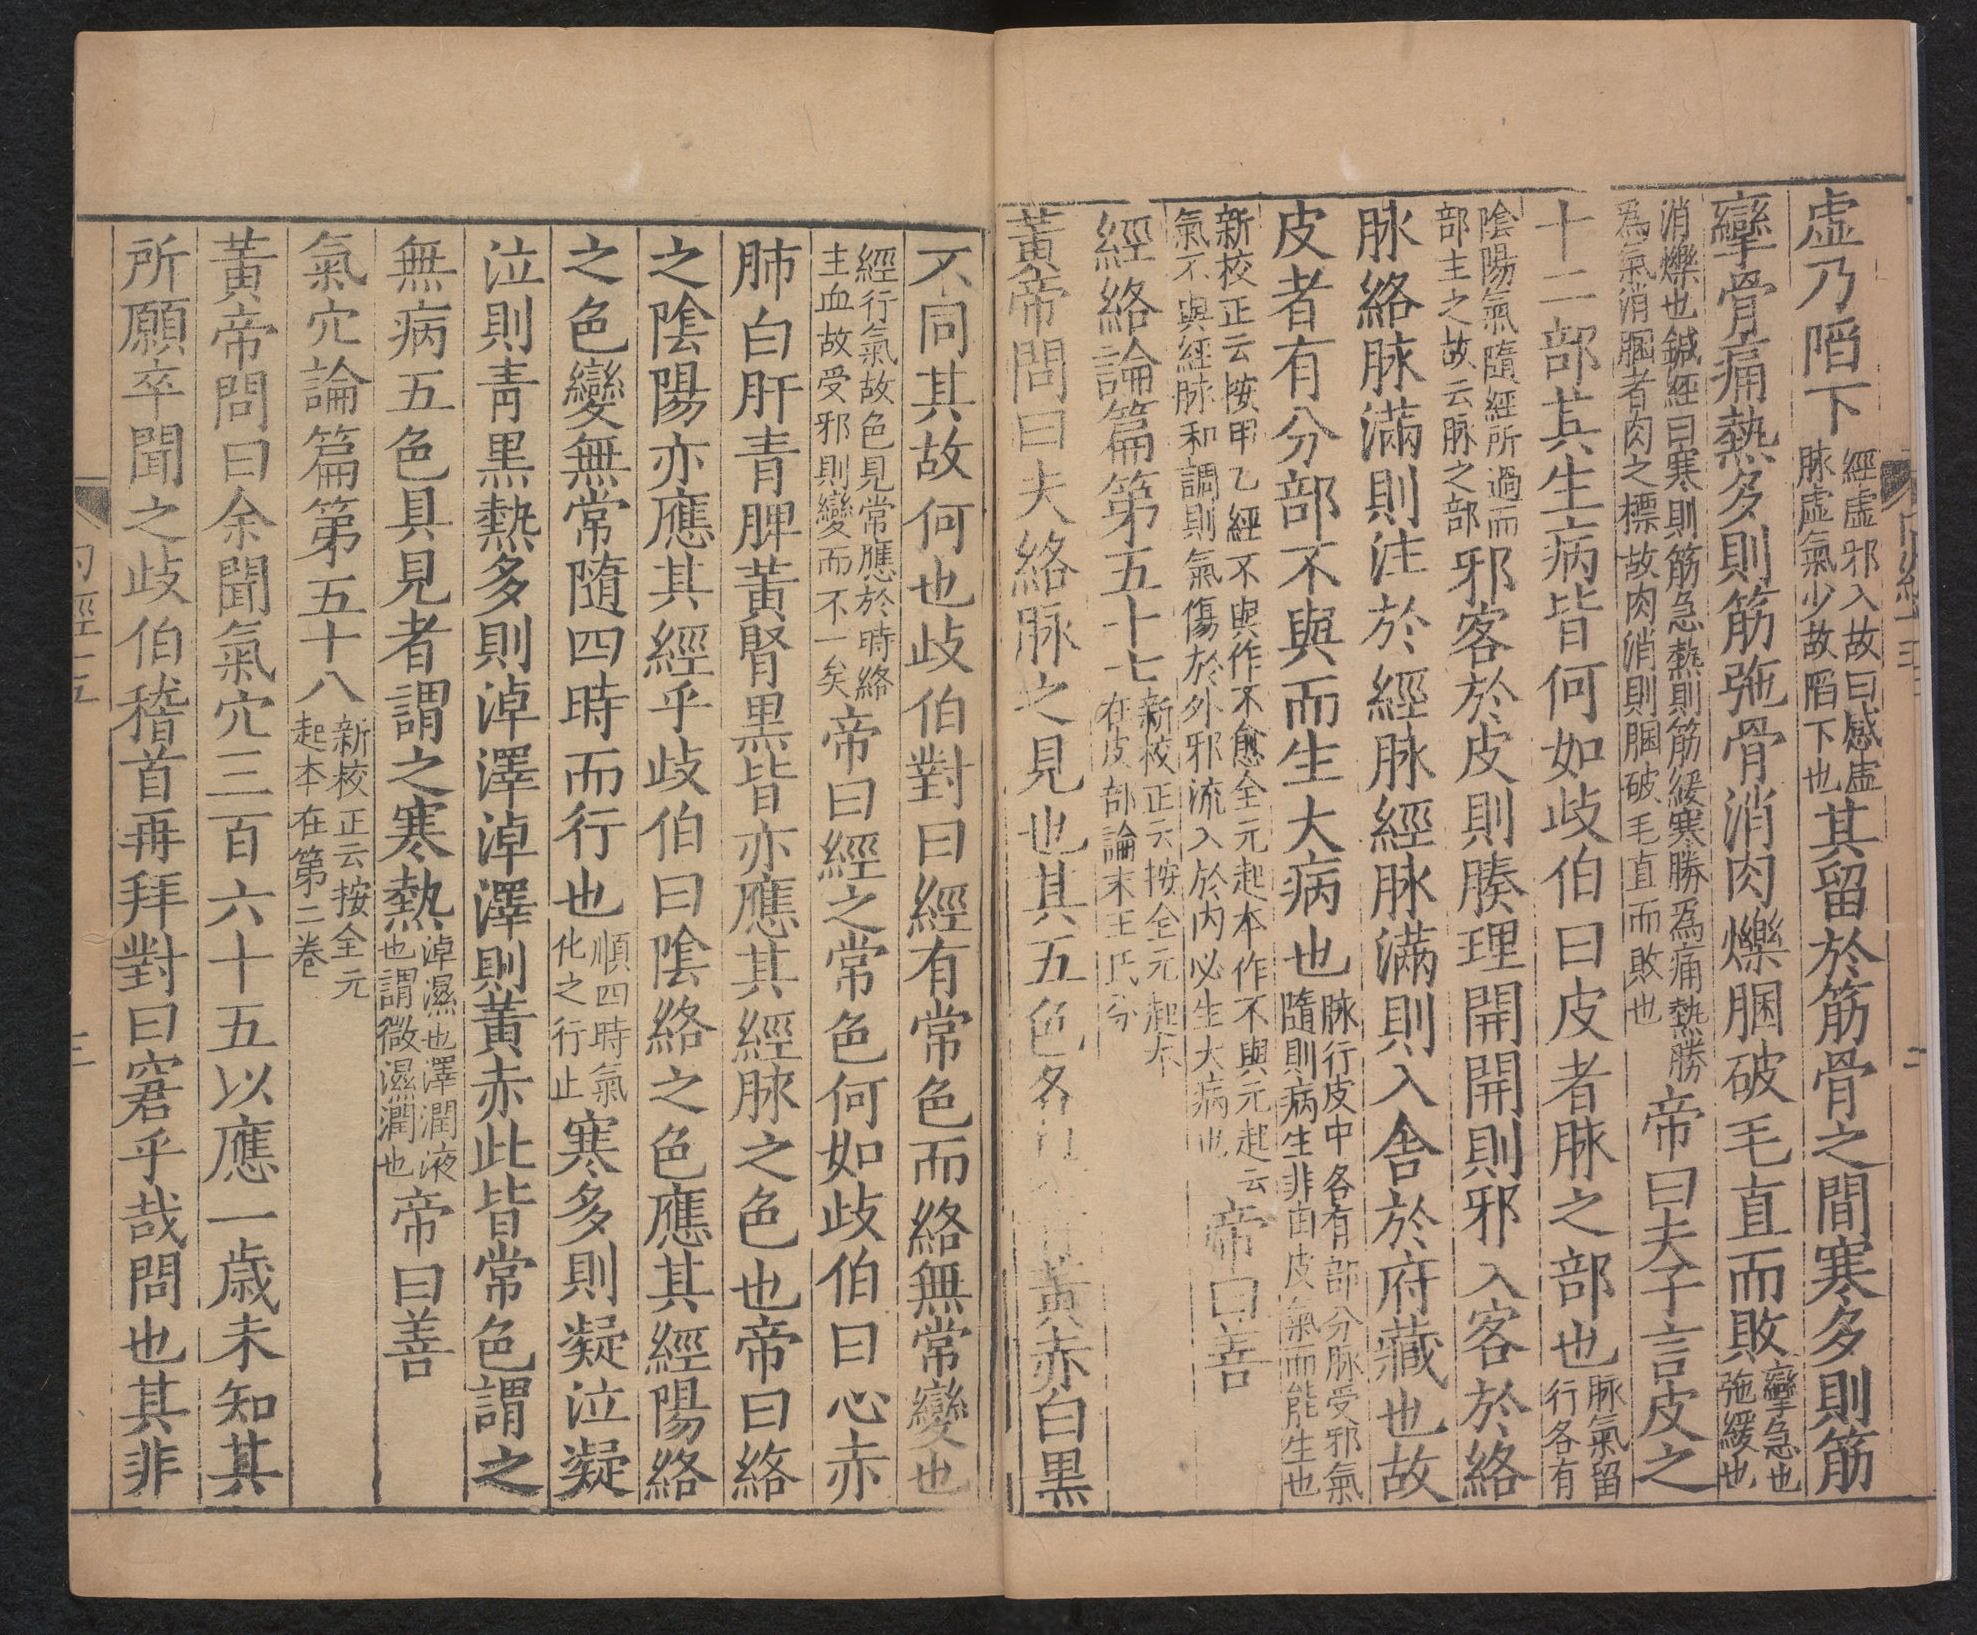 虛乃陷下經虛邪入故曰感虛脉虛氣少故陷下也其留於筋骨之間寒多則筋
攣骨痛熱多則筋弛骨消肉爍䐃破毛直而敗攣急也弛緩也
消爍也鍼經曰寒則筋急熱則筋緩寒勝爲痛熱勝爲氣消䐃者肉之標故肉消則䐃破毛直而敗也帝曰夫子言皮之
十二部其生病皆何如歧伯曰皮者脉之部也脉氣留行各有
陰陽氣隨經所過而部主之故云脉之部邪客於皮則腠理開開則邪入客於絡
脉絡脉滿則注於經脉經脉滿則入舍於府藏也故
皮者有分部不與而生大病也脉行皮中各有部分脉受邪氣隨則病生非由皮氣而能生也
新校正云按甲乙經不與作不愈全元起本作不與元起云氣不與經脉和調則氣傷於外邪流入於內必生大病也帝曰善
經絡論篇第五十七新校正云按全元起本在皮部論末王氏分
黃帝問曰夫絡脉之見也其五色各黃赤白黑
不同其故何也歧伯對曰經有常色而絡無常變也
經行氣故色見常應於時絡主血故受邪則變而不一矣帝曰經之常色何如歧伯曰心赤
肺白肝青脾黃腎黑皆亦應其經脉之色也帝曰絡
之陰陽亦應其經乎歧伯曰陰絡之色應其經陽絡
之色變無常隨四時而行也順四時氣化之行止寒多則凝泣凝
泣則青黑熱多則淖澤淖澤則黃赤此皆常色謂之
無病五色具見者謂之寒熱淖濕也澤潤液也謂微濕潤也帝曰善
氣穴論篇第五十八新校正云按全元起本在第二卷
黃帝問曰余聞氣穴三百六十五以應一歲未知其
所願卒聞之歧伯稽首再拜對曰窘乎哉問也其非
內經十五
三